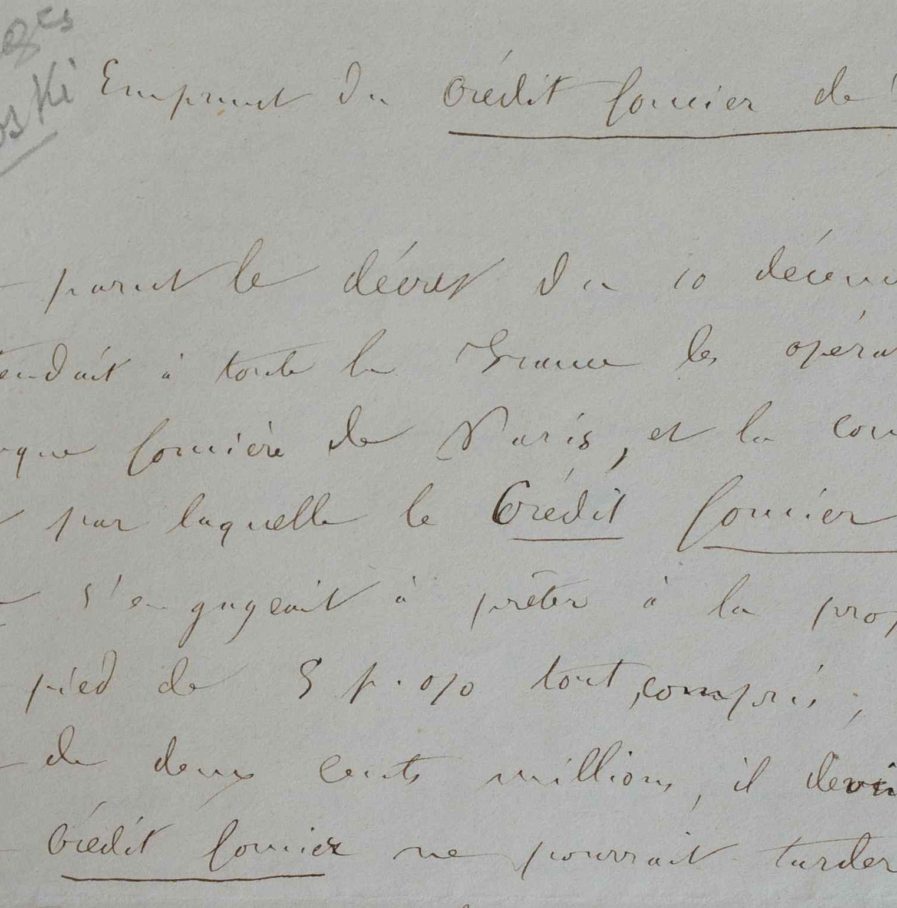 Emprunt du Crédit foncier de
parut le décret du 10 décem
tendait à toute la France les opéra
que foncière de Paris, et la con
par laquelle le Crédit foncier
s'engageait à prêter à la prop
pied de 5 p. 0/0 tout compris;
de deux cents millions, il devin
Crédit foncier ne pourrait tarder